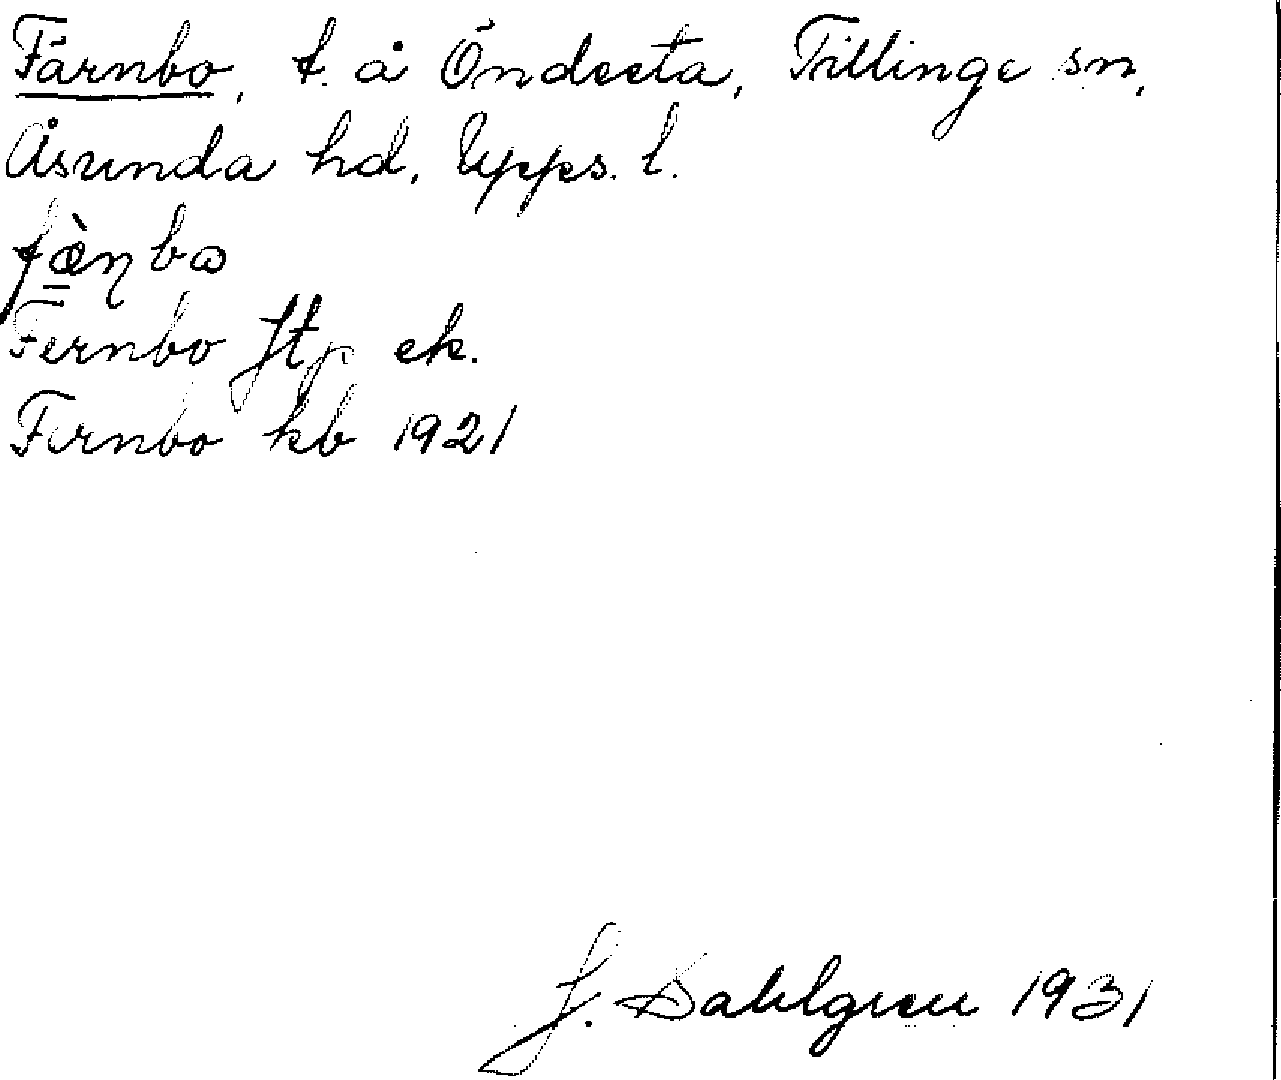 Färnbo, t. å Öndesta, Tillinge sn,
Åsunda hd, Upps. l.
Fernbo ek.
Fernbo kb 1921
F. Dahlgren 1931